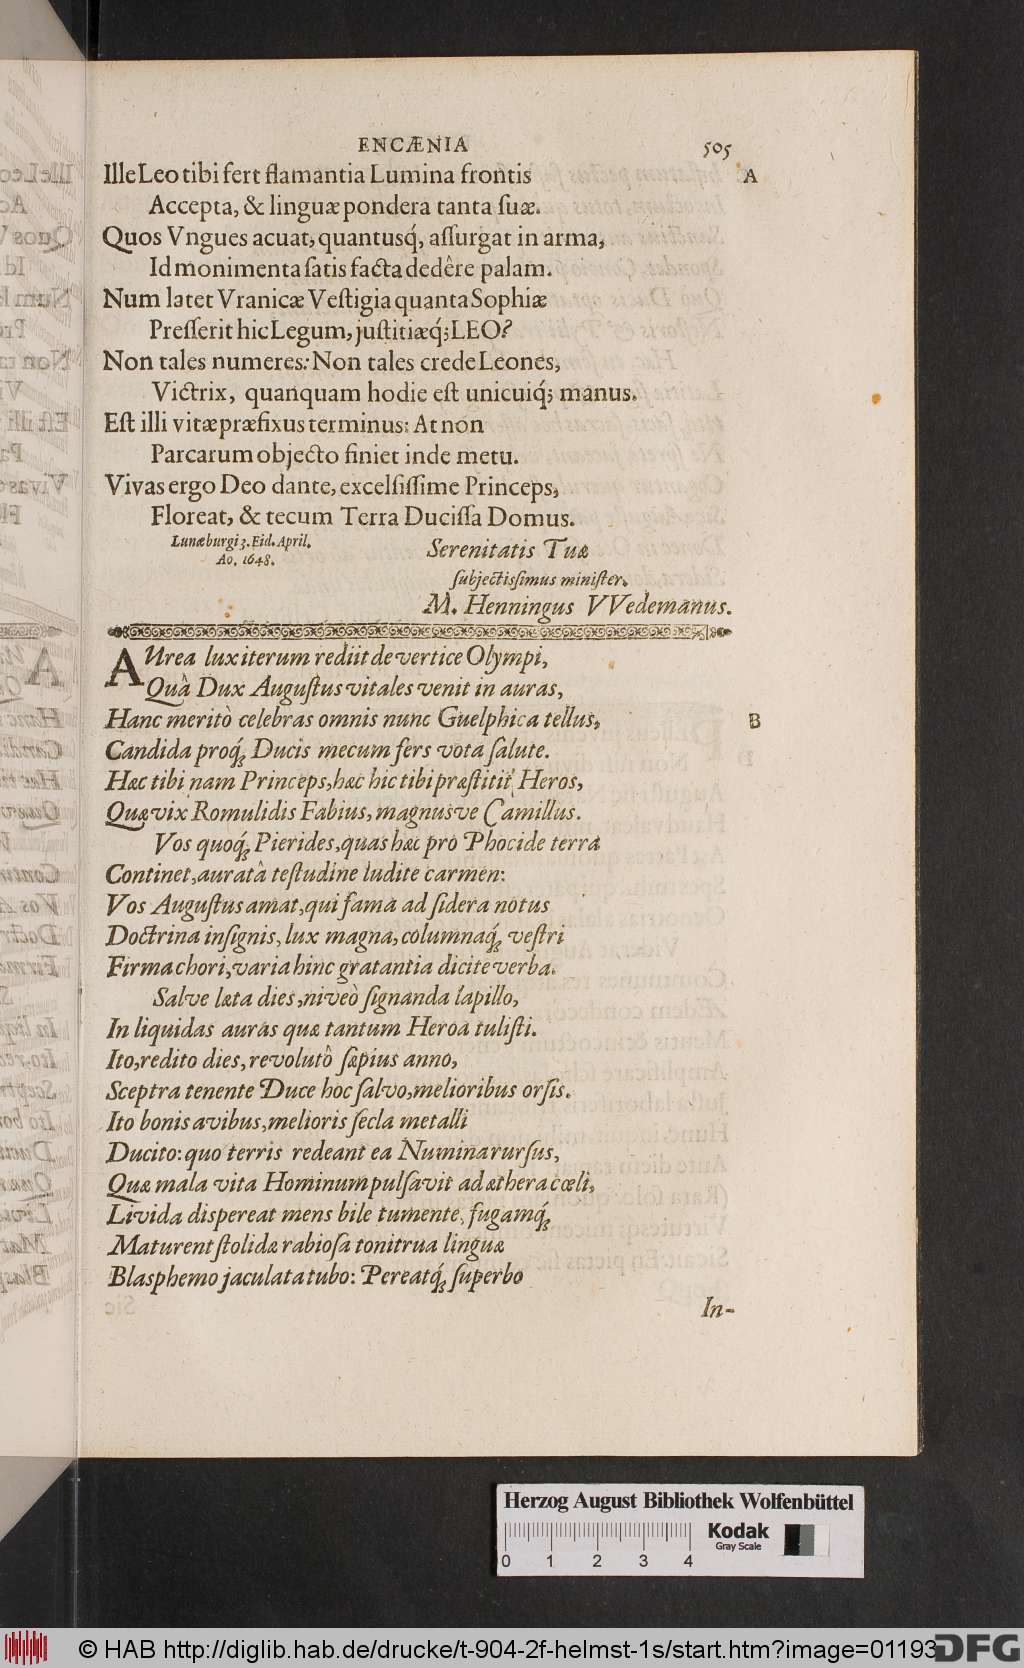 ENCÆNIA 505
Ille Leo tibi fert flamantia Lumina frontis A
Accepta, & linguæ pondera tanta ſuæ.
Quos Vngues acuat, quantusq́, aſſurgat in arma,
Id monimenta ſatis facta dedêre palam.
Num latet Vranicæ Veſtigia quanta Sophiæ
Preſſerit hic Legum, juſtitiæq́; LEO?
Non tales numeres: Non tales crede Leones,
Victrix, quanquam hodie eſt unicuiq́; manus.
Eſt illi vitæ præfixus terminus: At non
Parcarum objecto finiet inde metu.
Vivas ergo Deo dante, excelſiſſime Princeps,
Floreat, & tecum Terra Duciſſa Domus.
Lunæburgi 3. Eid. April.
Ao. 1648.
Serenitatis Tuæ
ſubjectiſsimus miniſter.
M. Henningus VVedemanus.
AUrea lux iterum rediit de vertice Olympi,
Quâ Dux Auguſtus vitales venit in auras,
Hanc meritò celebras omnis nunc Guelphica tellus, B
Candida proq́; Ducis mecum fers vota ſalute.
Hæc tibi nam Princeps, hæc hic tibi præſtitit Heros,
Quæ vix Romulidis Fabius, magnusve Camillus.
Vos quoq́; Pierides, quas hæc pro Phocide terra
Continet, auratâ teſtudine ludite carmen:
Vos Auguſtus amat, qui fama ad ſidera notus
Doctrina inſignis, lux magna, columnaq́; veſtri
Firma chori, varia hinc gratantia dicite verba.
Salve læta dies, niveò ſignanda lapillo,
In liquidas auras quæ tantum Heroa tuliſti.
Ito, redito dies, revolutô ſæpius anno,
Sceptra tenente Duce hoc ſalvo, melioribus orſis.
Ito bonis avibus, melioris ſecla metalli
Ducito: quo terris redeant ea Numina rurſus,
Quæ mala vita Hominum pulſavit ad æthera cœli,
Livida dispereat mens bile tumente, fugamq́;
Maturent ſtolidæ rabioſa tonitrua linguæ
Blasphemo jaculata tubo: Pereatq́; ſuperbo
In-
Herzog August Bibliothek Wolfenbüttel
Kodak
Gray Scale
0 1 2 3 4
© HAB http://diglib.hab.de/drucke/t-904-2f-helmst-1s/start.htm?image=01193
DFG